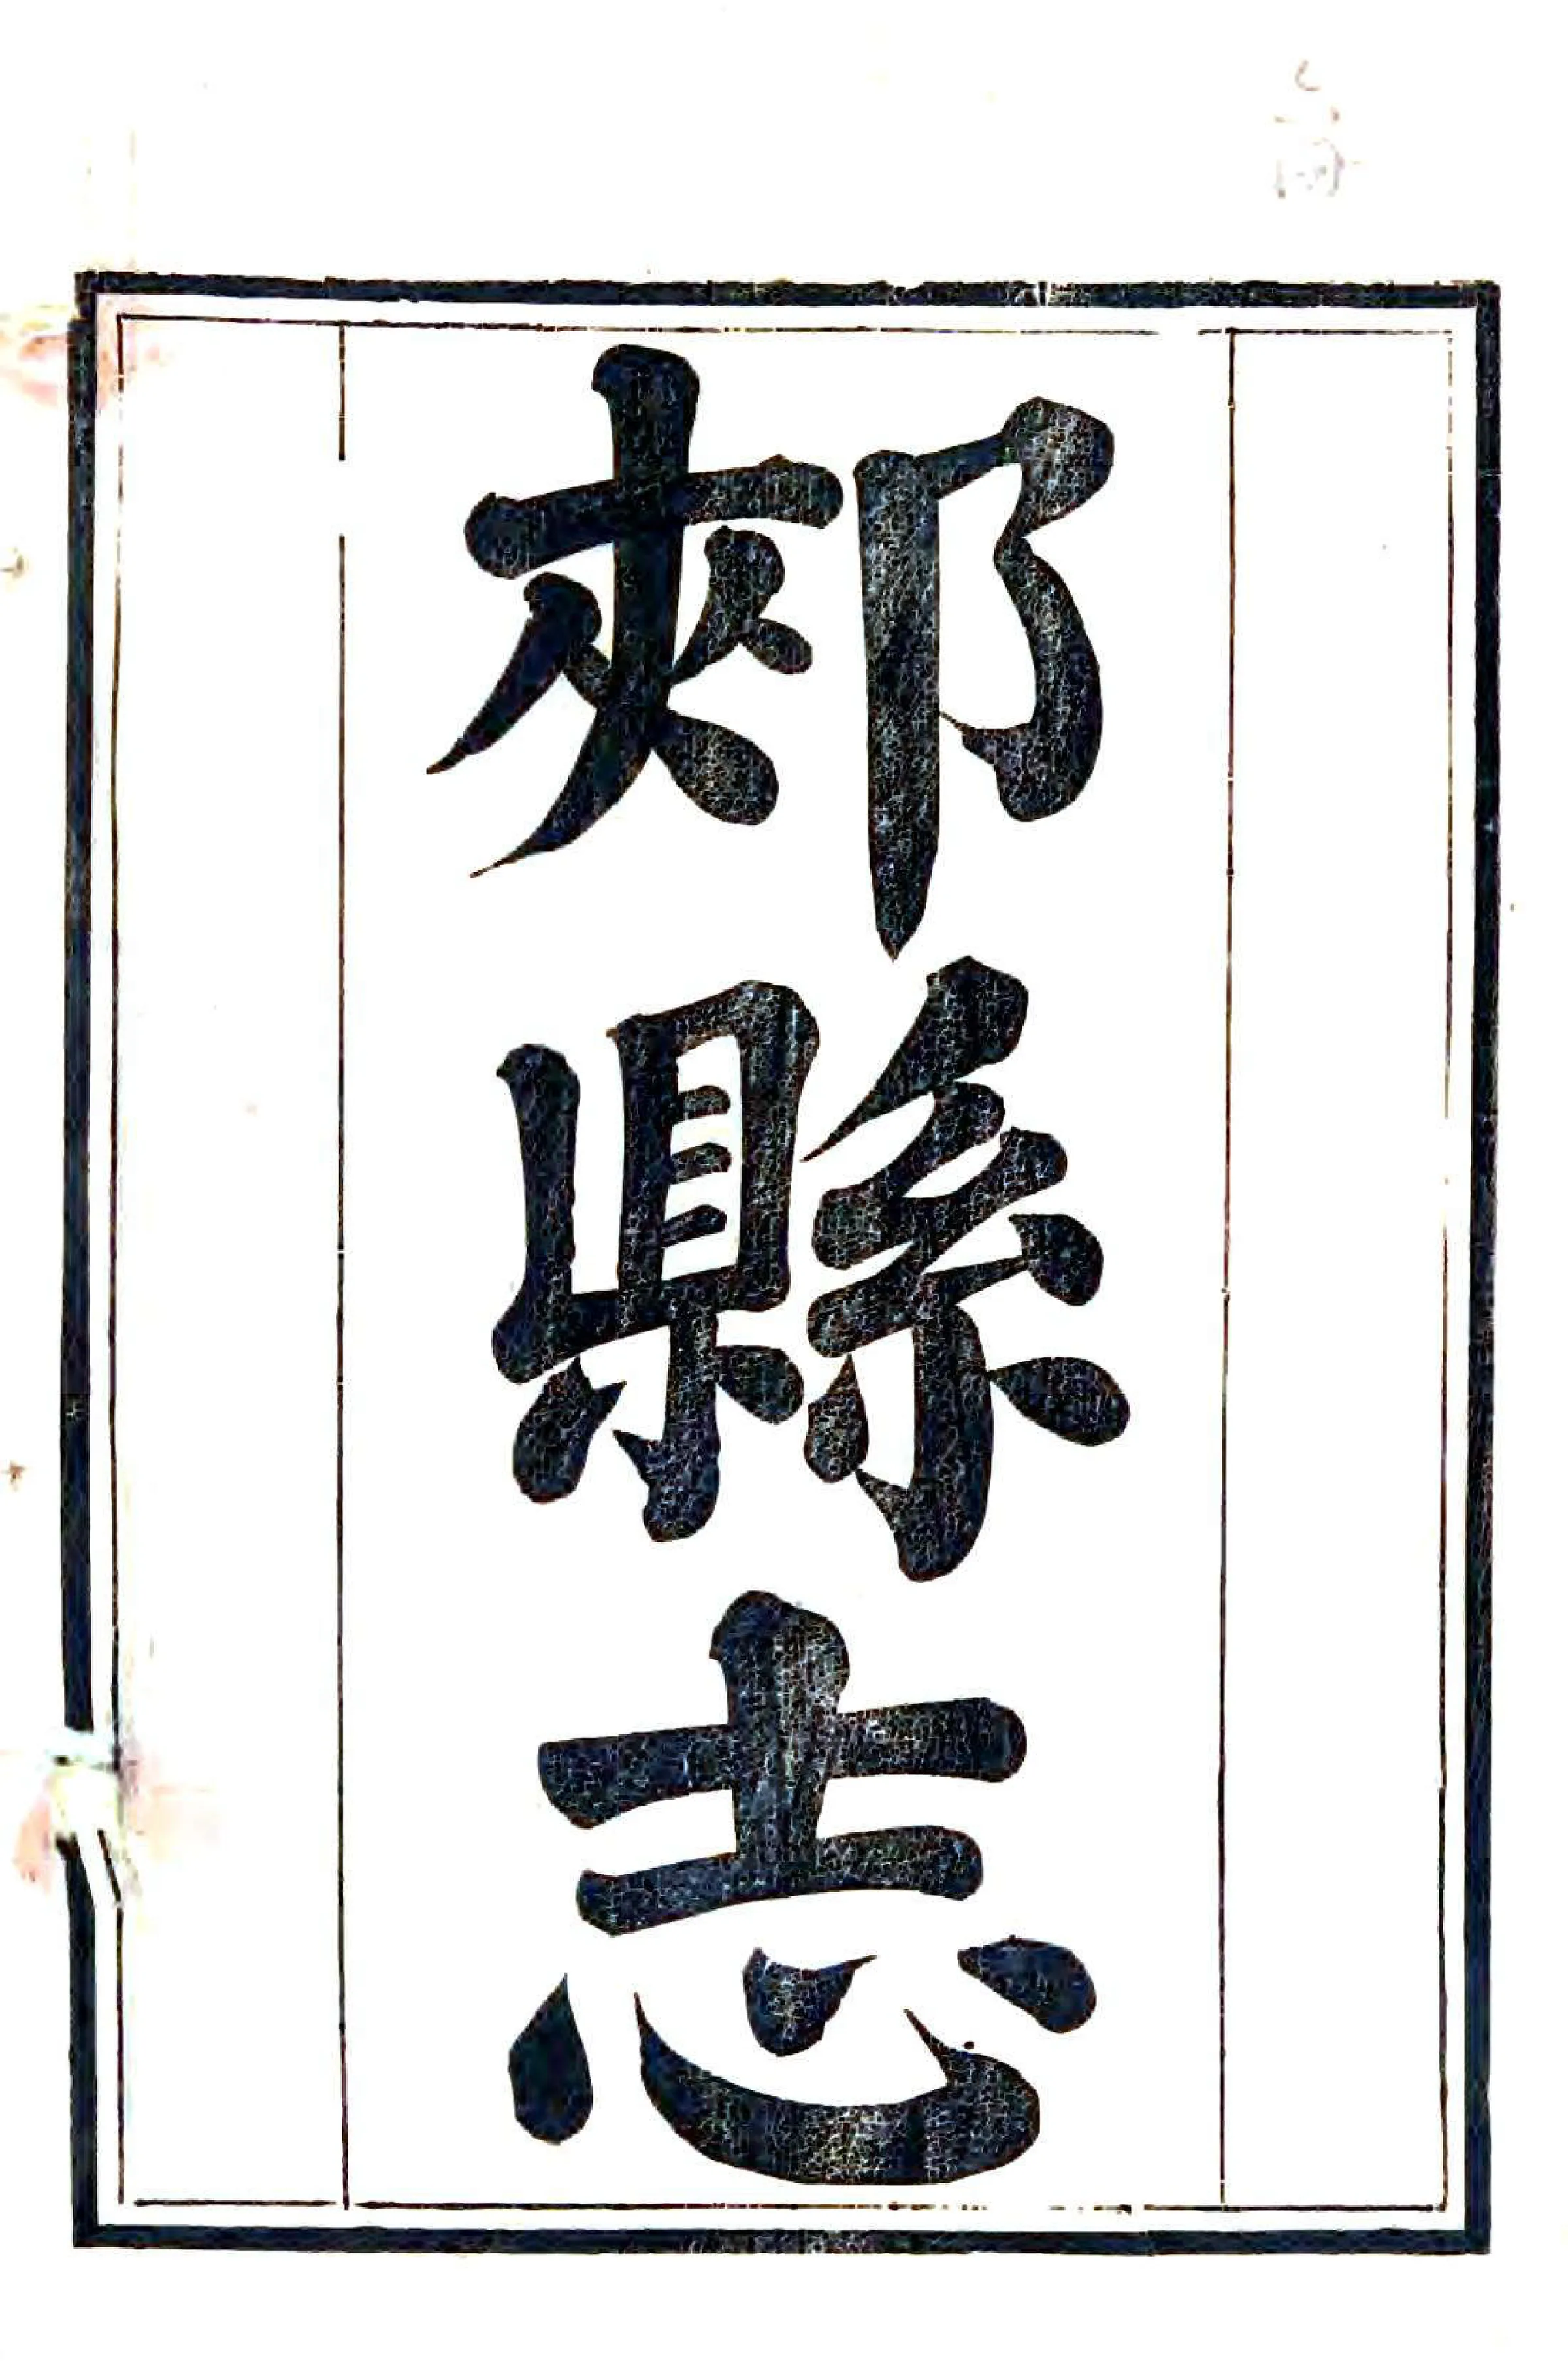 郟縣志